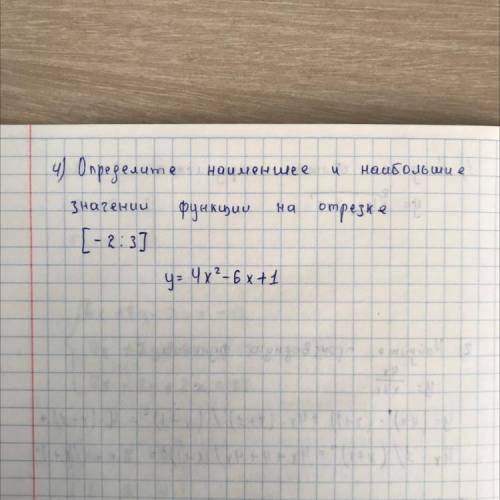 4) Определите наименшее и наибольшие
значении функции на отрезке
[-2:3]
y=4x²-6x+1